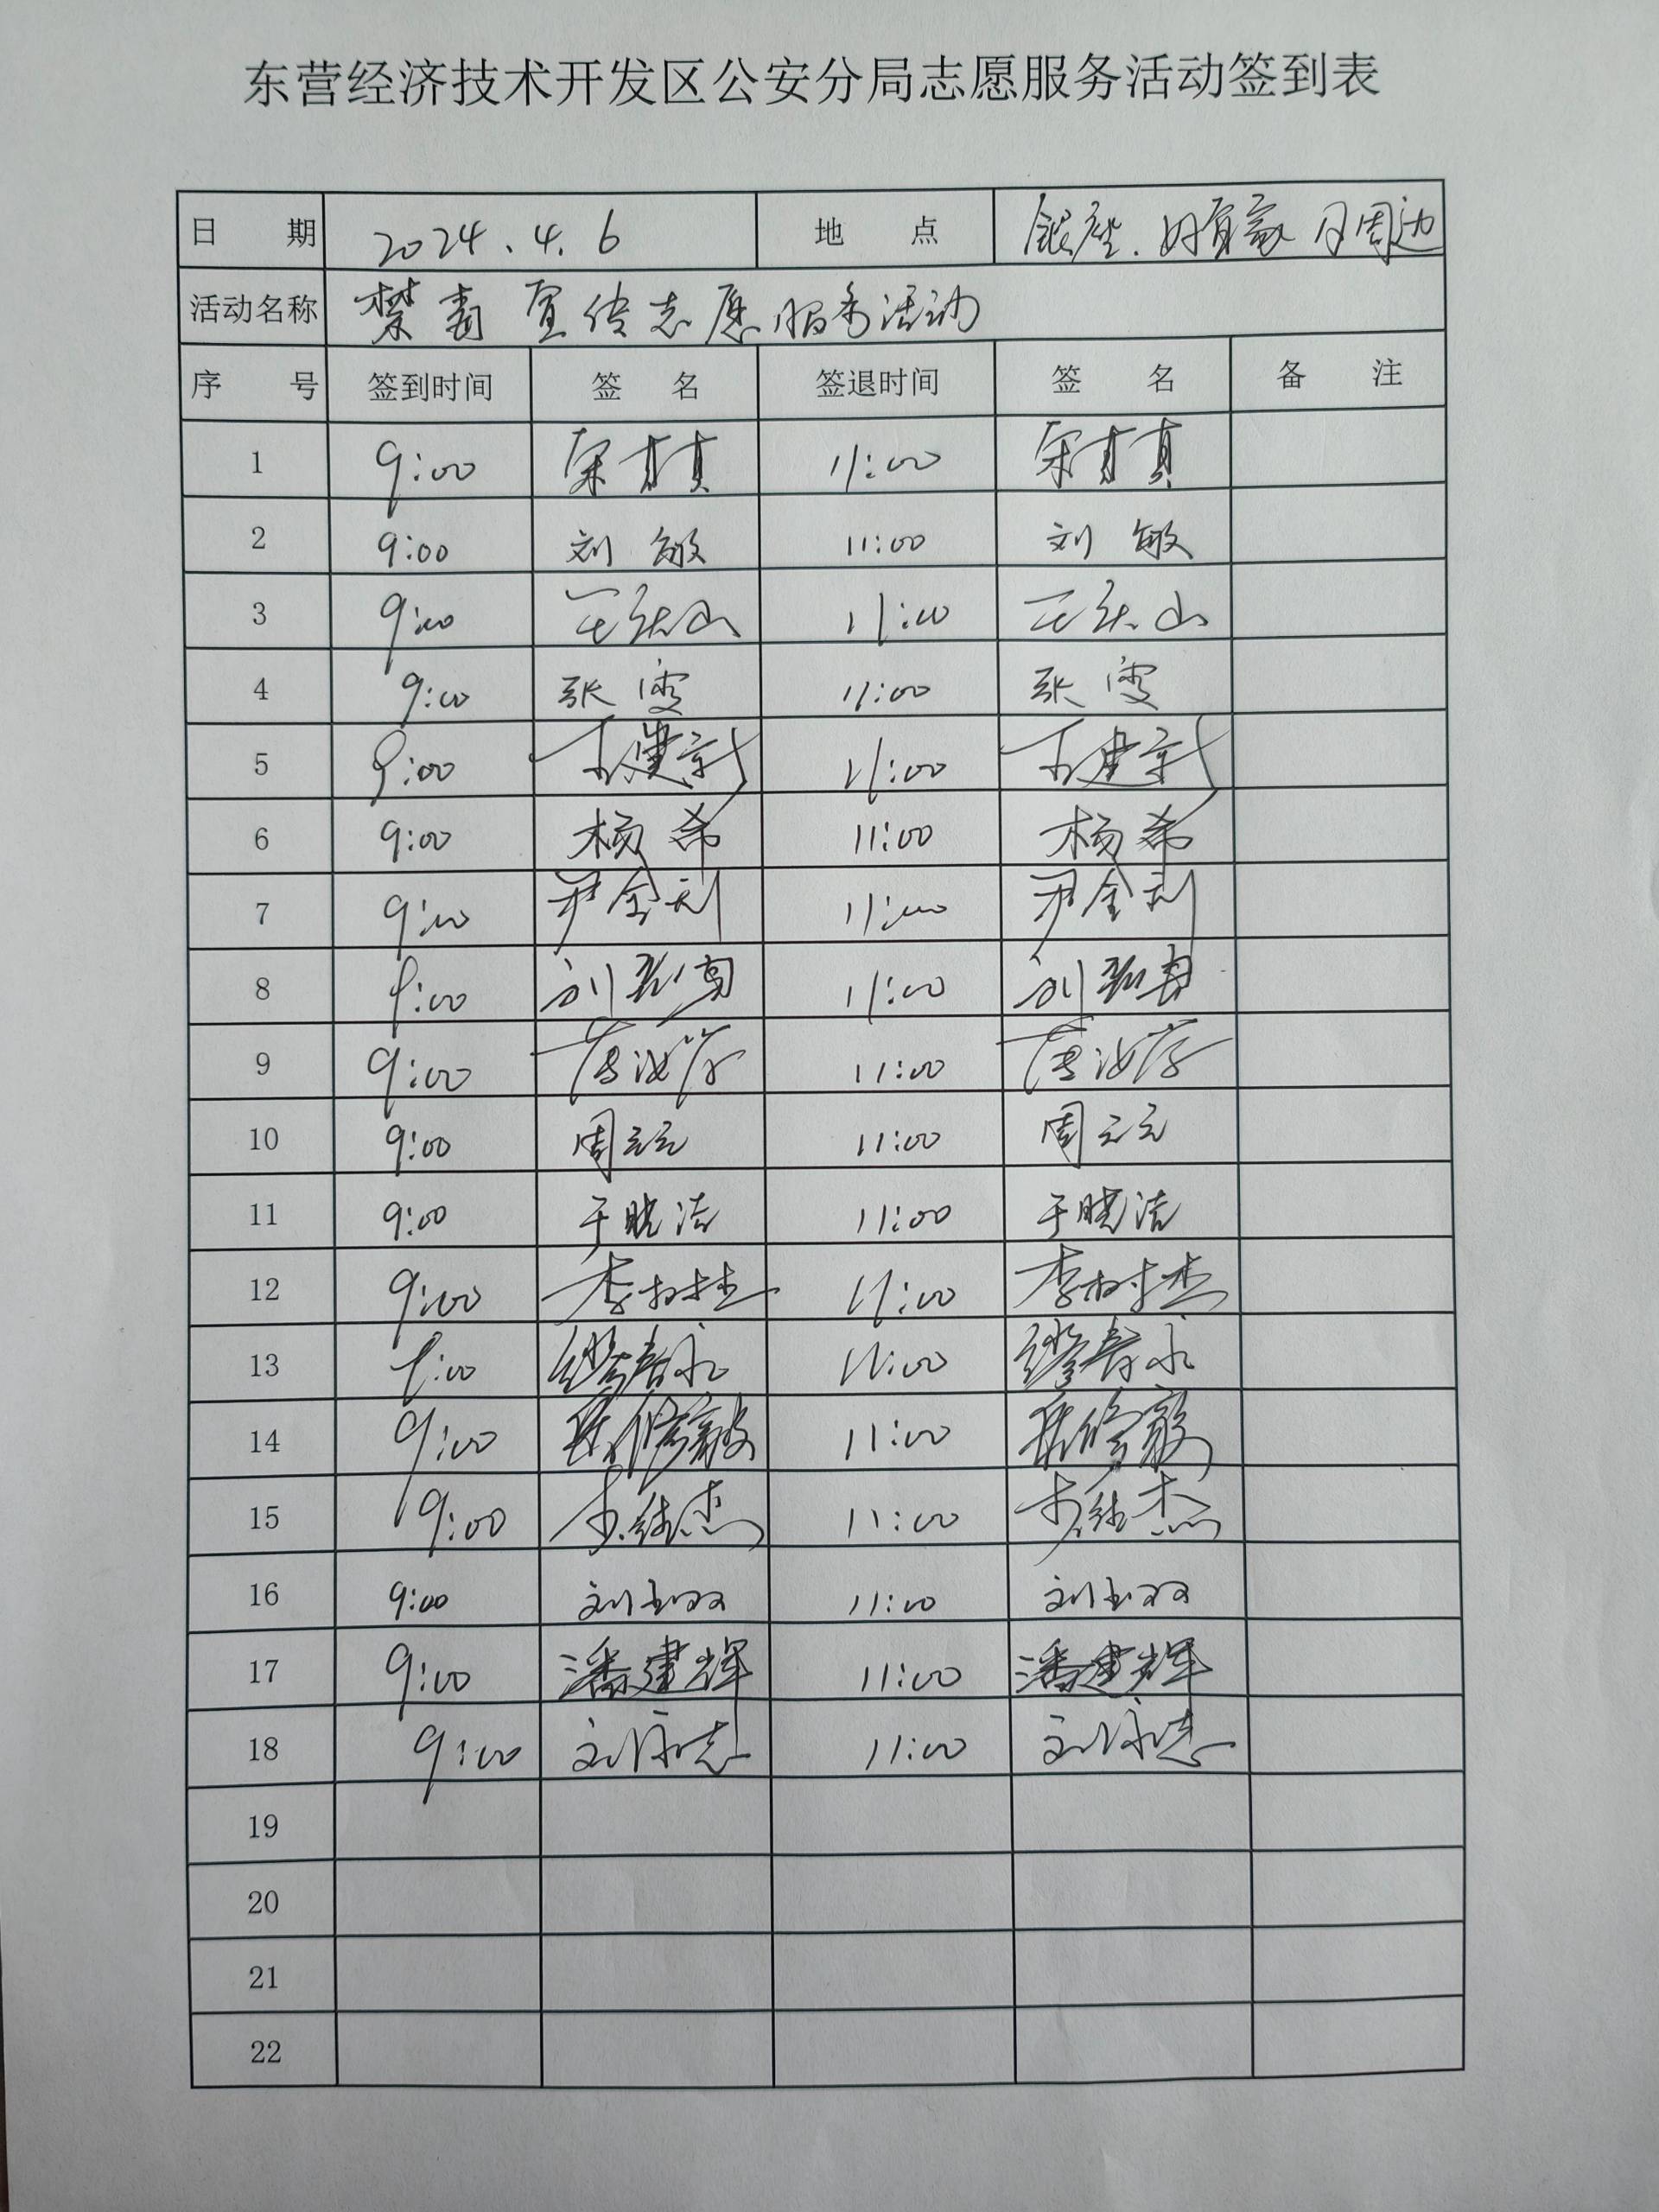 东营经济技术开发区公安分局志愿服务活动签到表
日 期 2024.4.6 地 点 银座.好百家及周边
活动名称 禁毒宣传志愿服务活动
序 号 签到时间 签 名 签退时间 签 名 备 注
1 9:00 11:00
2 9:00 刘敏 11:00 刘敏
3 9:00 11:00
4 9:00 张雯 11:00 张雯
5 9:00 建新 11:00 建新
6 9:00 杨希 11:00 杨希
7 9:00 尹金利 11:00 尹金利
8 9:00 刘 勇 11:00 刘 勇
9 9:00 11:00
10 9:00 周云云 11:00 周云云
11 9:00 于晓洁 11:00 于晓洁
12 9:00 李树杰 11:00 李树杰
13 9:00 缪春永 11:00 缪春永
14 9:00 11:00
15 9:00 杰 11:00 杰
16 9:00 刘玉双 11:00 刘玉双
17 9:00 潘建辉 11:00 潘建辉
18 9:00 刘永志 11:00 刘永志
19
20
21
22